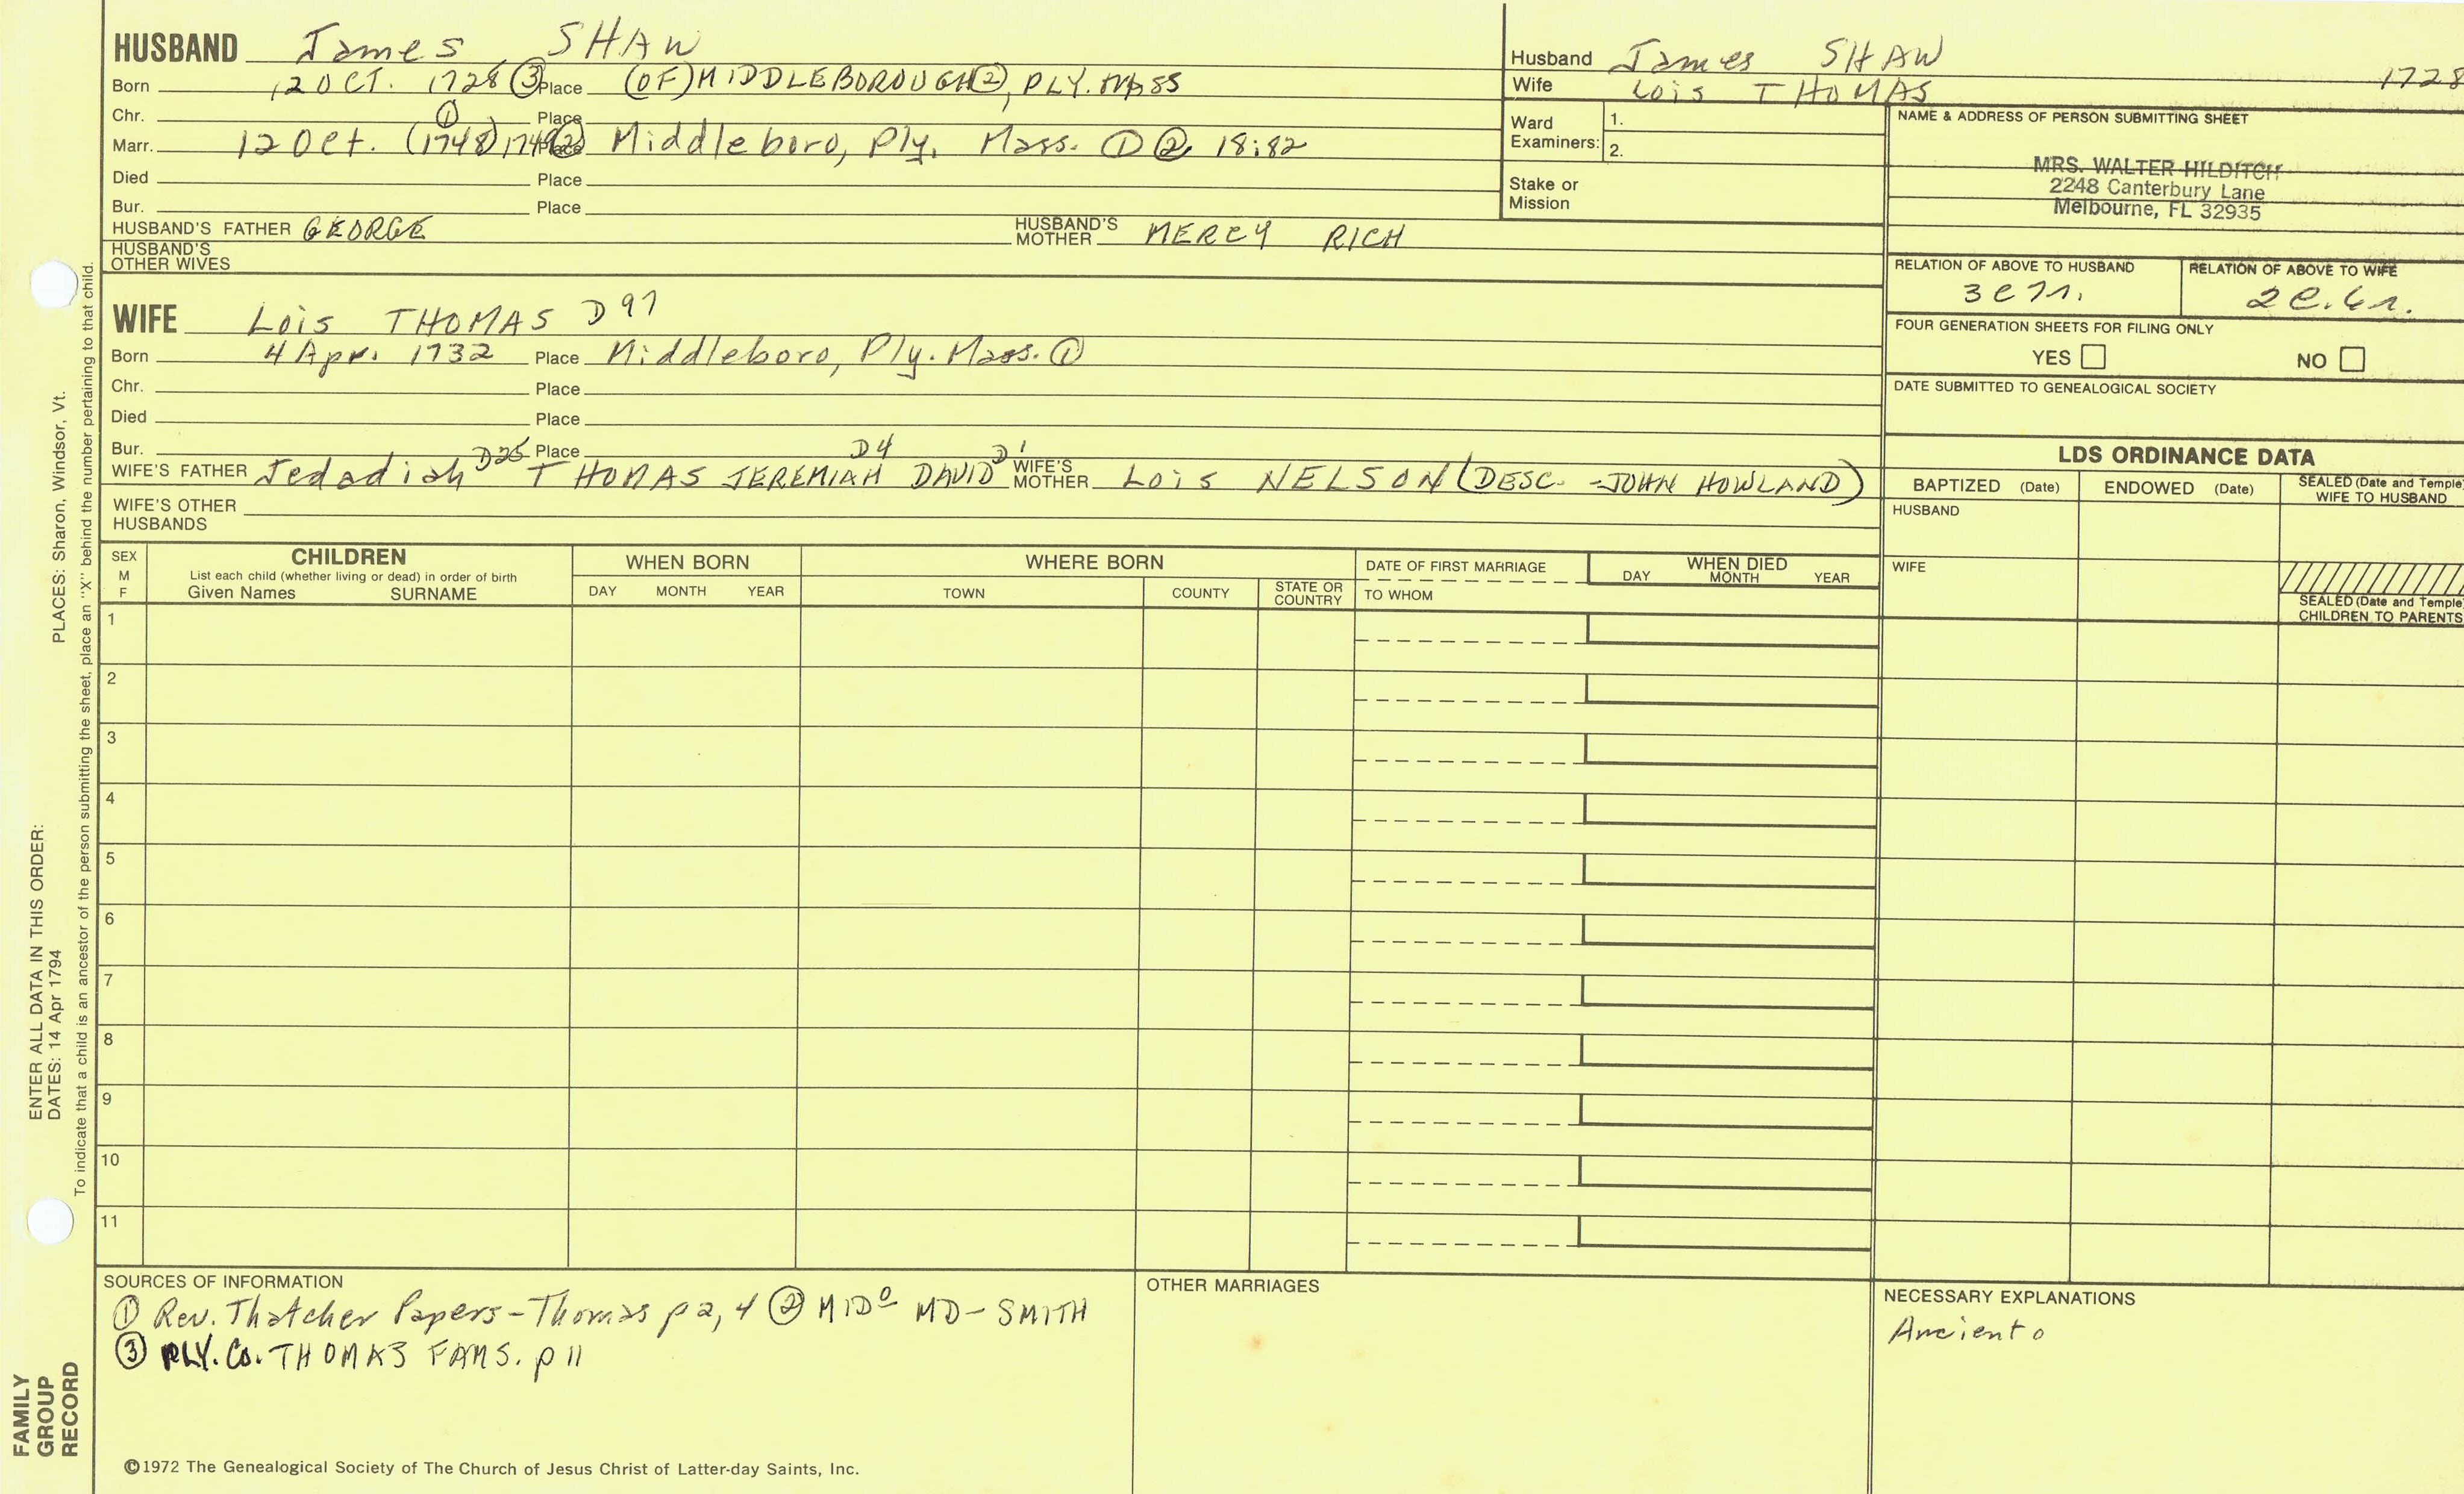 HUSBAND James SHAW
Born 12 OCT. 1728 ③ Place (OF) MIDDLEBOROUGH ②, PLY. MASS
Chr. ① Place
Marr. 12 Oct. (1748) 1749 ② Place Middleboro, Ply. Mass. ① ② 18:82
Died Place
Bur. Place
HUSBAND'S FATHER GEORGE HUSBAND'S MOTHER MERCY RICH
HUSBAND'S OTHER WIVES
WIFE Lois THOMAS D97
Born 4 Apr. 1732 Place Middleboro, Ply. Mass. ①
Chr. Place
Died Place
Bur. Place
WIFE'S FATHER Jedadiah D25 THOMAS JEREMIAH D4 DAVID D1 WIFE'S MOTHER Lois NELSON (DESC. - JOHN HOWLAND)
WIFE'S OTHER HUSBANDS
Husband James SHAW 1728
Wife Lois THOMAS
Ward Examiners: 1.
2.
Stake or Mission
NAME & ADDRESS OF PERSON SUBMITTING SHEET
MRS. WALTER HILDITCH
2248 Canterbury Lane
Melbourne, FL 32935
RELATION OF ABOVE TO HUSBAND RELATION OF ABOVE TO WIFE
FOUR GENERATION SHEETS FOR FILING ONLY
YES NO
DATE SUBMITTED TO GENEALOGICAL SOCIETY
LDS ORDINANCE DATA
BAPTIZED (Date) ENDOWED (Date) SEALED (Date and Temple) WIFE TO HUSBAND
HUSBAND
WIFE
SEALED (Date and Temple) CHILDREN TO PARENTS
SEX M F
CHILDREN
List each child (whether living or dead) in order of birth
Given Names SURNAME
WHEN BORN
DAY MONTH YEAR
WHERE BORN
TOWN COUNTY STATE OR COUNTRY
DATE OF FIRST MARRIAGE
TO WHOM
WHEN DIED
DAY MONTH YEAR
1
2
3
4
5
6
7
8
9
10
11
SOURCES OF INFORMATION
① Rev. Thatcher Papers - Thomas p 2, 4 ② MIDo MD - SMITH
③ PLY. Co. THOMAS FAMS. p 11
OTHER MARRIAGES
NECESSARY EXPLANATIONS
Anciento
©1972 The Genealogical Society of The Church of Jesus Christ of Latter-day Saints, Inc.
FAMILY GROUP RECORD
ENTER ALL DATA IN THIS ORDER:
DATES: 14 Apr 1794 PLACES: Sharon, Windsor, Vt.
To indicate that a child is an ancestor of the person submitting the sheet, place an "X" behind the number pertaining to that child.